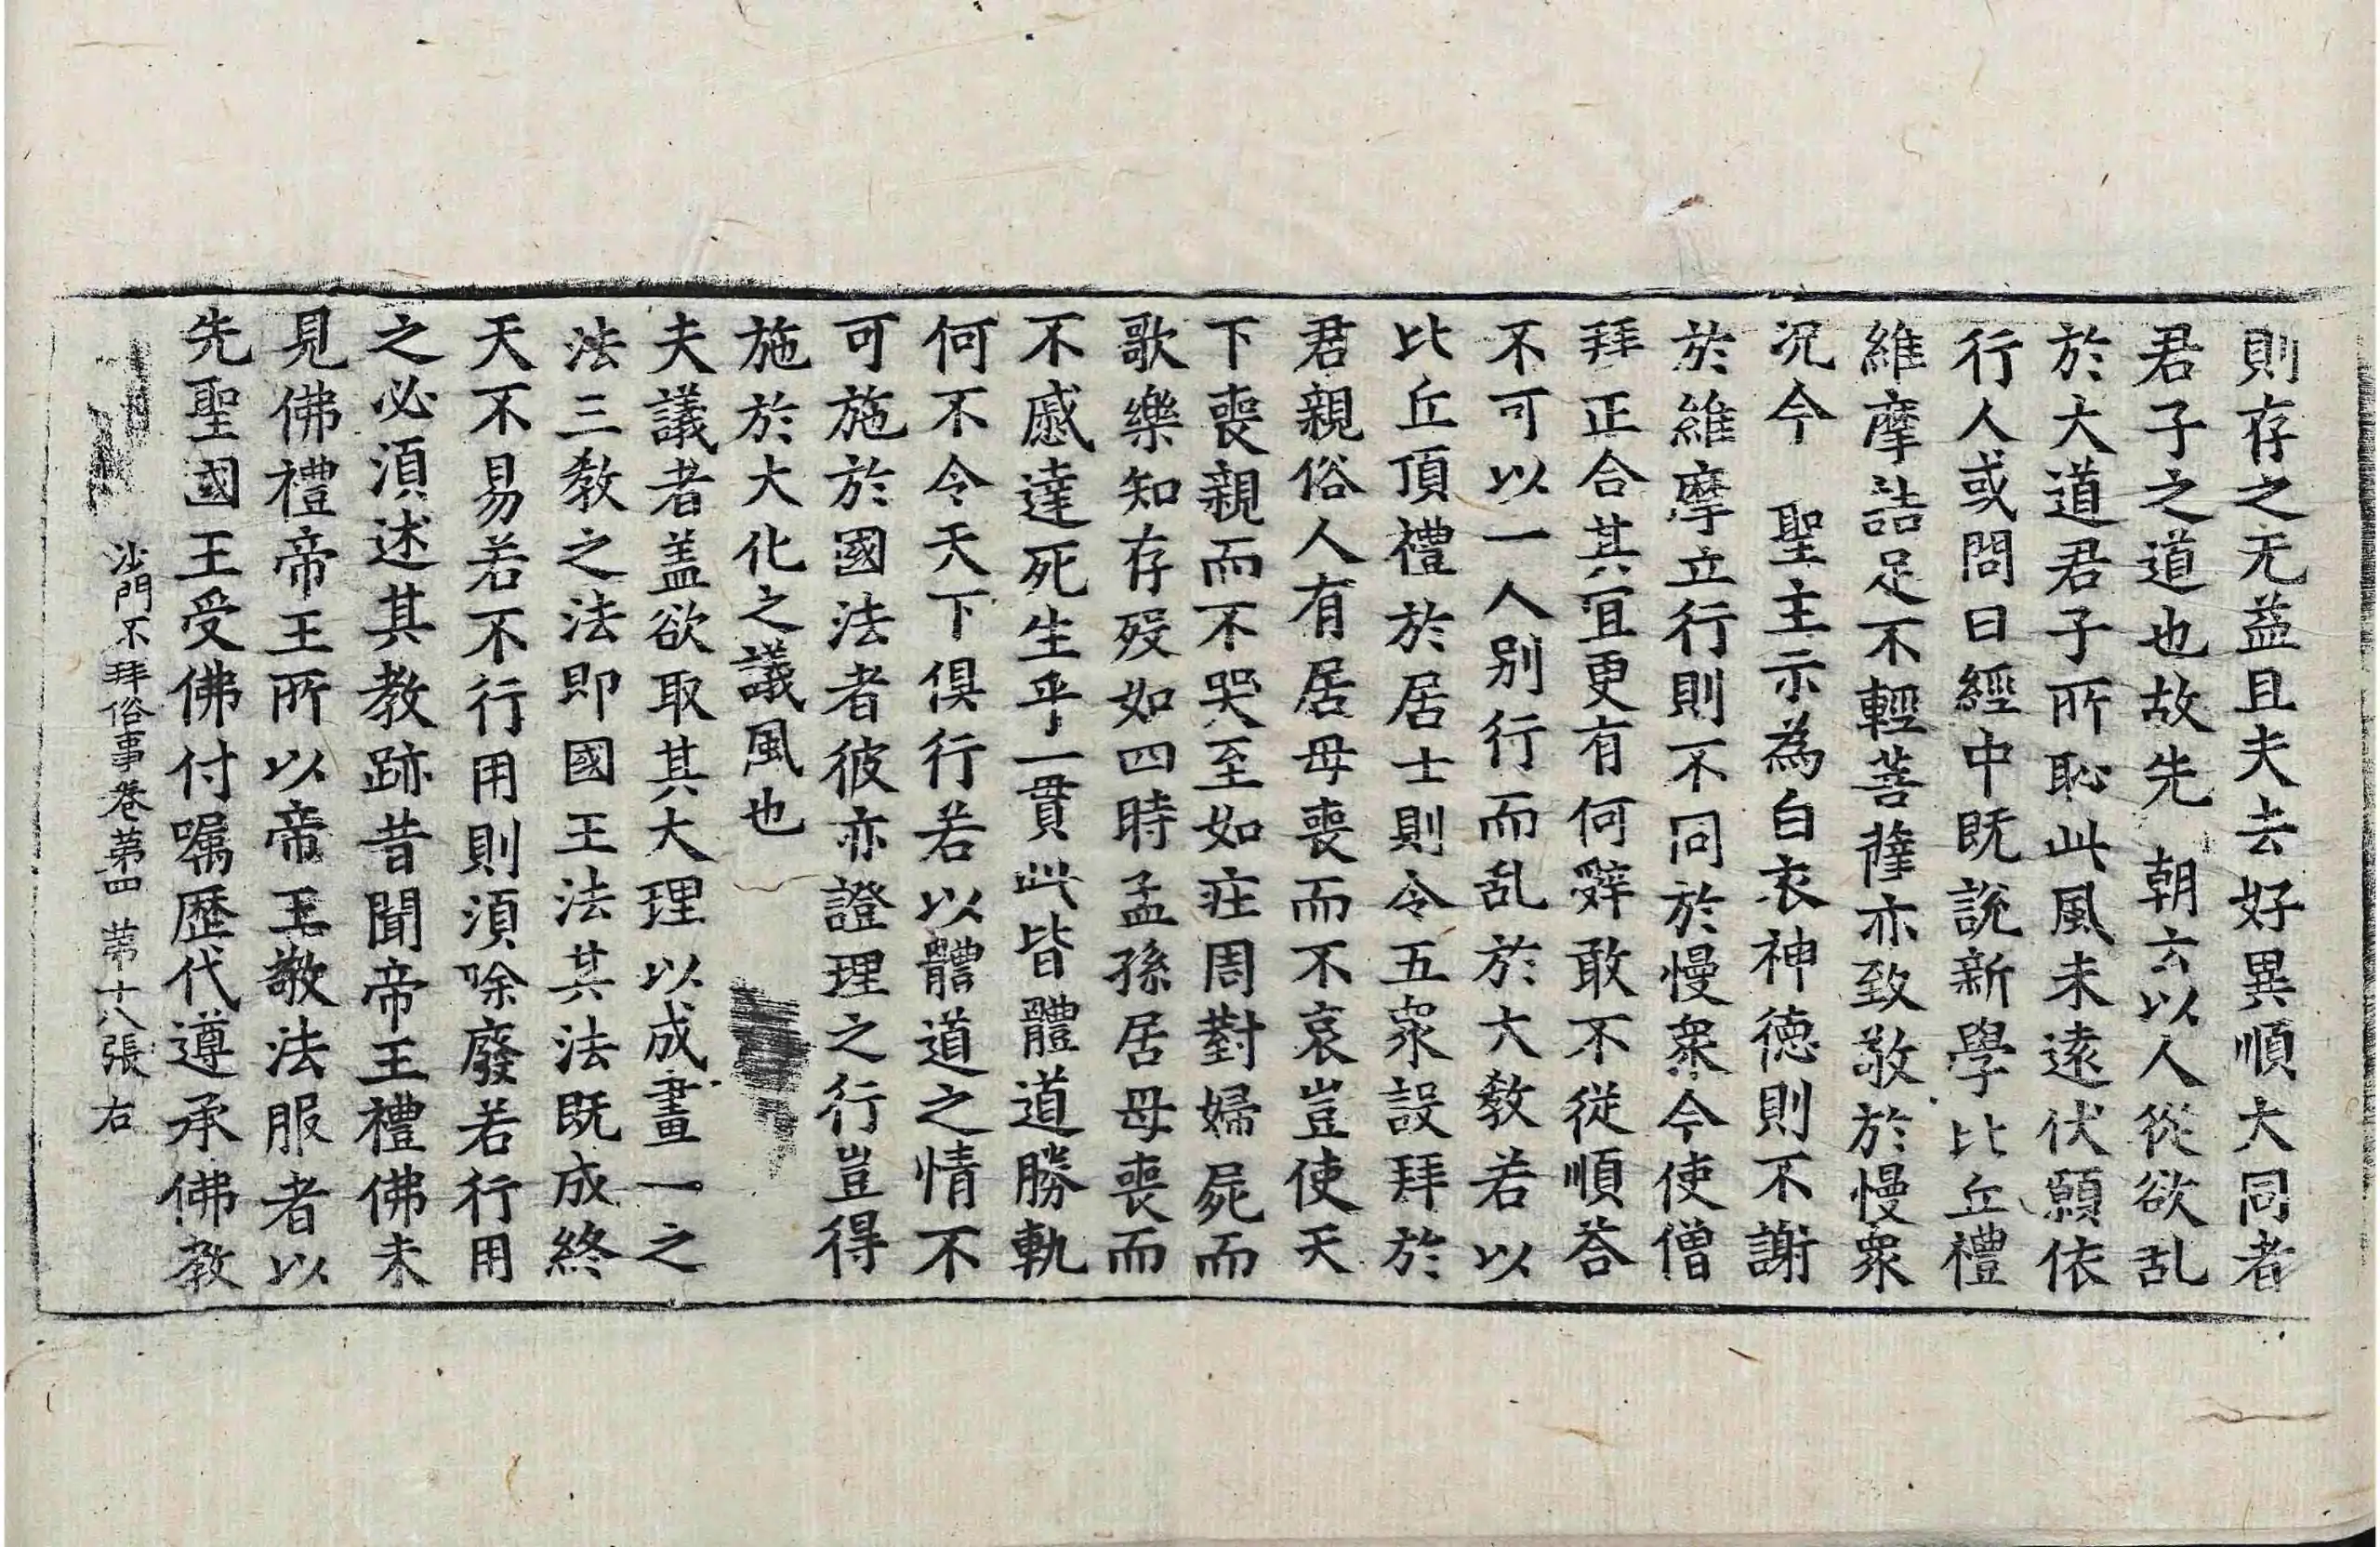 則存之无益且夫去好異順大同者
君子之道也故先　朝六以人從欲乱
於大道君子所恥此風未遠伏願依
行人或問曰經中既說新學比丘禮
維摩詰足不輕菩薩亦致敬於慢衆
況今　聖主示為白衣神德則不謝
於維摩立行則不同於慢衆今使僧
拜正合其宜更有何辤敢不從順荅
不可以一人别行而乱於大教若以
比丘頂禮於居士則令五衆設拜於
君親俗人有居母喪而不哀豈使天
下喪親而不哭至如庄周對婦屍而
歌樂知存歿如四時孟孫居母喪而
不慼達死生乎一貫此皆體道勝軌
何不令天下俱行若以體道之情不
可施於國法者彼亦證理之行豈得
施於大化之議風也
夫議者盖欲取其大理以成畫一之
法三教之法即國王法其法既成終
天不易若不行用則須除廢若行用
之必須述其教跡昔聞帝王禮佛未
見佛禮帝王所以帝王敬法服者以
先聖國王受佛付嘱歷代遵承佛教
沙門不拜俗事卷第四　第十八張　右